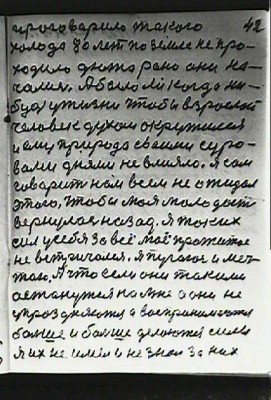 42
проговарило такого
холода 80 лет по земле не про-
ходило дюто рано они на-
чались. А было ли когда ни-
будь у жизни чтобы взрослой
человек духом окружился
и ему природа своими суро-
выми днями не влияло. Я сам
говорит нам всем не ожидал
этого, чтобы моя молодость
вернулася назад. Я таких
сил у себя за всё моё прожитое
не встречался. Я пугаюс и меч-
таю. А что если они такими
останутся на мне а они не
упраздняются а воспринимаются
больше и больше делаются силы
Я их не имел и не знал за них